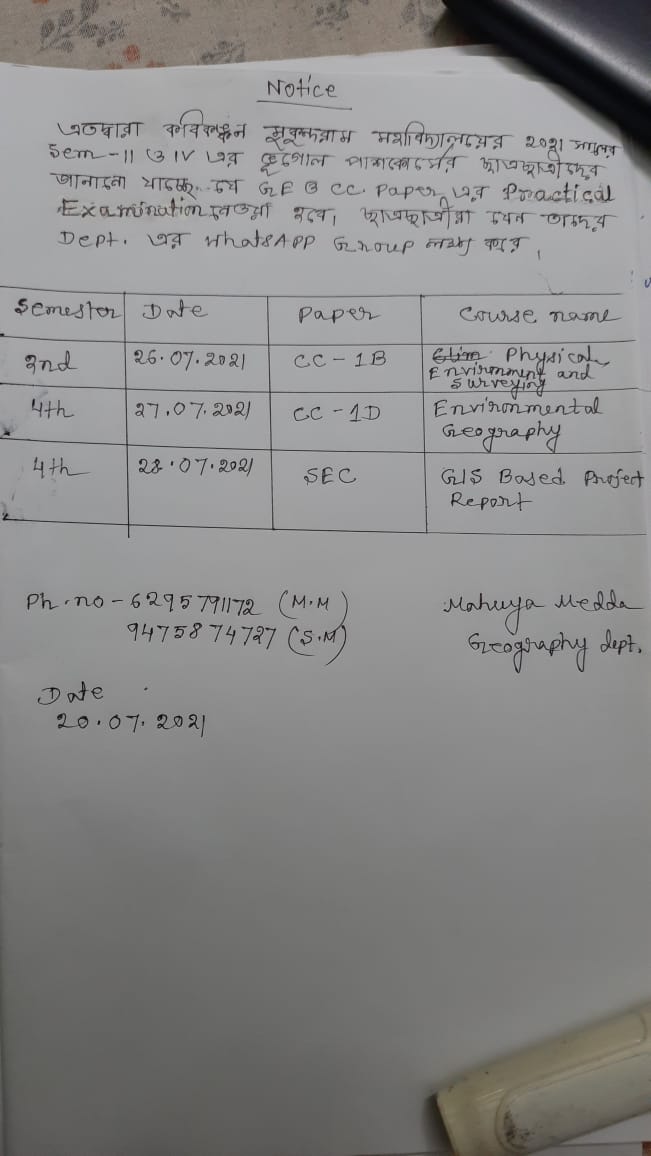 Notice
এতদ্বারা কবিকঙ্কন মুকুন্দরাম মহাবিদ্যালয়ের 2021 সালের
Sem-II ও IV এর ভূগোল পাশকোর্সের ছাত্রছাত্রীদের
জানানো যাচ্ছে যে GE ও CC Paper এর Practical
Examination নেওয়া হবে। ছাত্রছাত্রীরা যেন তাদের
Dept. এর WhatsAPP Group লক্ষ্য করে।
Semester Date Paper Course name
2nd 26.07.2021 CC-1B Physical Environment and Surveying
4th 27.07.2021 CC-1D Environmental Geography
4th 28.07.2021 SEC GIS Based Project Report
Ph.no - 6295791172 (M.M)
9475874727 (S.M)
Mahuya Medda
Geography dept.
Date
20.07.2021